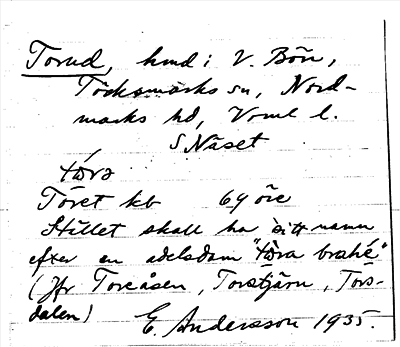 Torud, hmd i V. Bön,
Töcksmarks sn, Nord-
marks hd, Vrml l.
S Näset
tɷ́rə
Töret kb 69 öre
Stället skall ha sitt namn
efter en adelsdam "tɷra brahé"
(Jfr Toreåsen, Torstjärn, Tors-
dalen)
E. Andersson 1935.